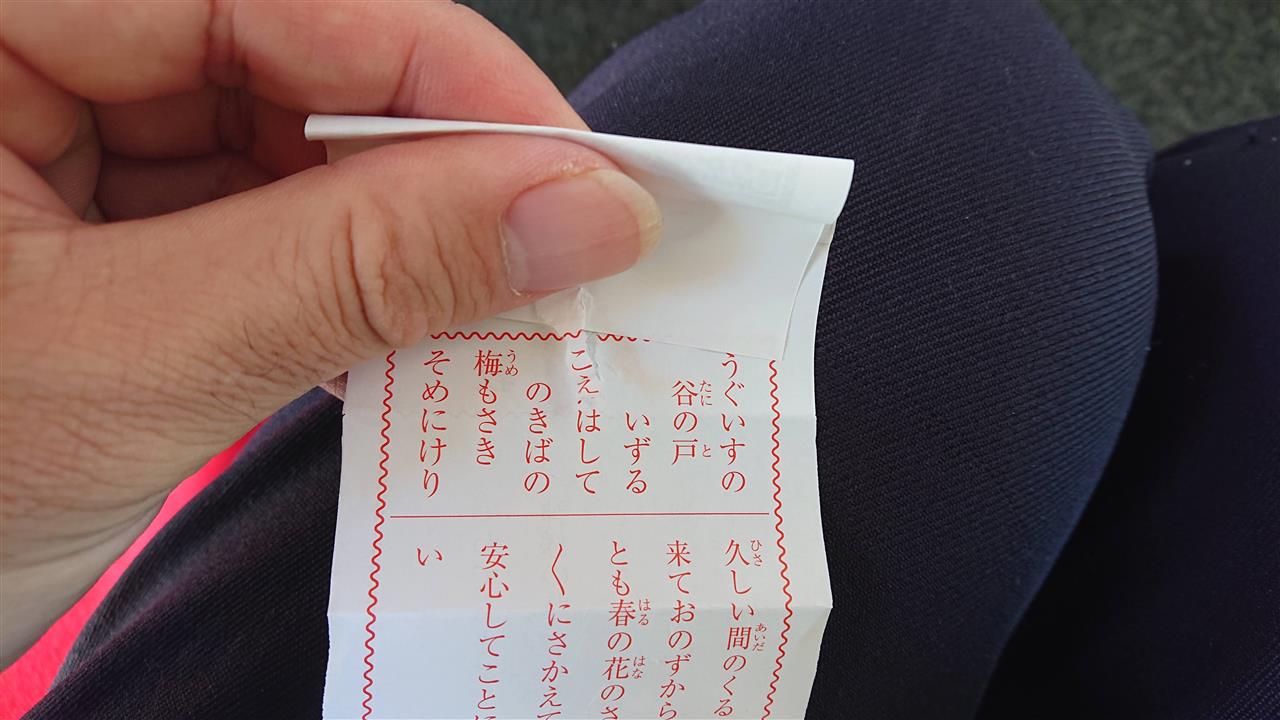 うぐいすの
谷の戸
いずる
こえはして
のきばの
梅もさき
そめにけり
久しい間のくる
来ておのずから
とも春の花のさ
〳〵にさかえて
安心してことに
い